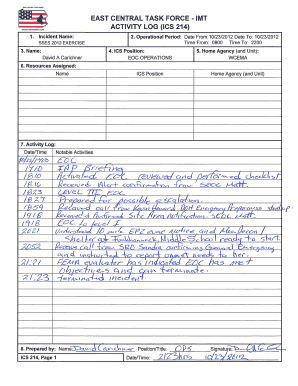 EAST CENTRAL TASK FORCE - IMT
ACTIVITY LOG (ICS 214)
1. Incident Name:
SSES 2012 EXERCISE
2. Operational Period: Date From: 10/23/2012 Date To: 10/23/2012
Time From: 0800 Time To: 2200
3. Name:
David A Carichner
4. ICS Position:
EOC OPERATIONS
5. Home Agency (and Unit):
WCEMA
6. Resources Assigned:
Name ICS Position Home Agency (and Unit)
7. Activity Log:
Date/Time Notable Activities
EOC
1910 IAP Briefing
1810 Activated EOC, reviewed and performed checklist
1816 Received Alert confirmation from SEOC Matt.
1823 LEVEL III EOC
1827 Prepared for possible escalation.
1859 call from
1918 Received & Confirmed Site Area Notification SEOC Matt.
1918 EOC to level I
2021 10 mile EPZ evac notice, and
Shelter at Tunkhannock Middle School ready to start.
2052 call from SRO Sandra confirming General Emergency
and instructed to report needs to her.
21:21 FEMA evaluator has indicated EOC has met
objectives and can terminate.
21:23 terminated incident.
8. Prepared by: Name: David Carichner Position/Title: OPS Signature:
ICS 214, Page 1 Date/Time: 2123hrs 10/23/2012